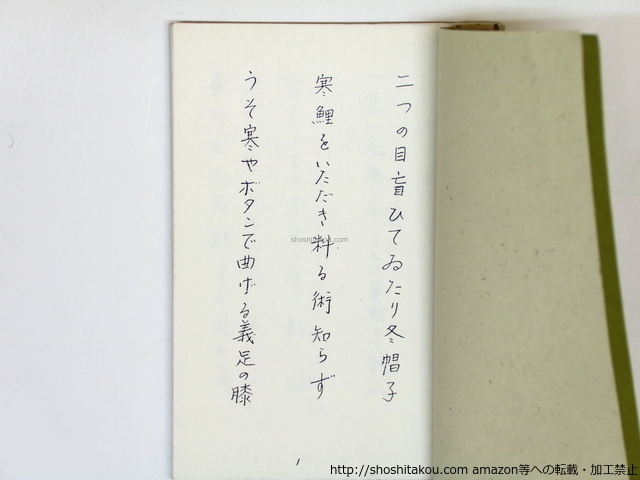 二つの目盲ひてゐたり冬帽子
寒鯉をいただき料る術知らず
うそ寒やボタンで曲げる義足の膝
1
shoshitakou.com
http://shoshitakou.com amazon等への転載・加工禁止